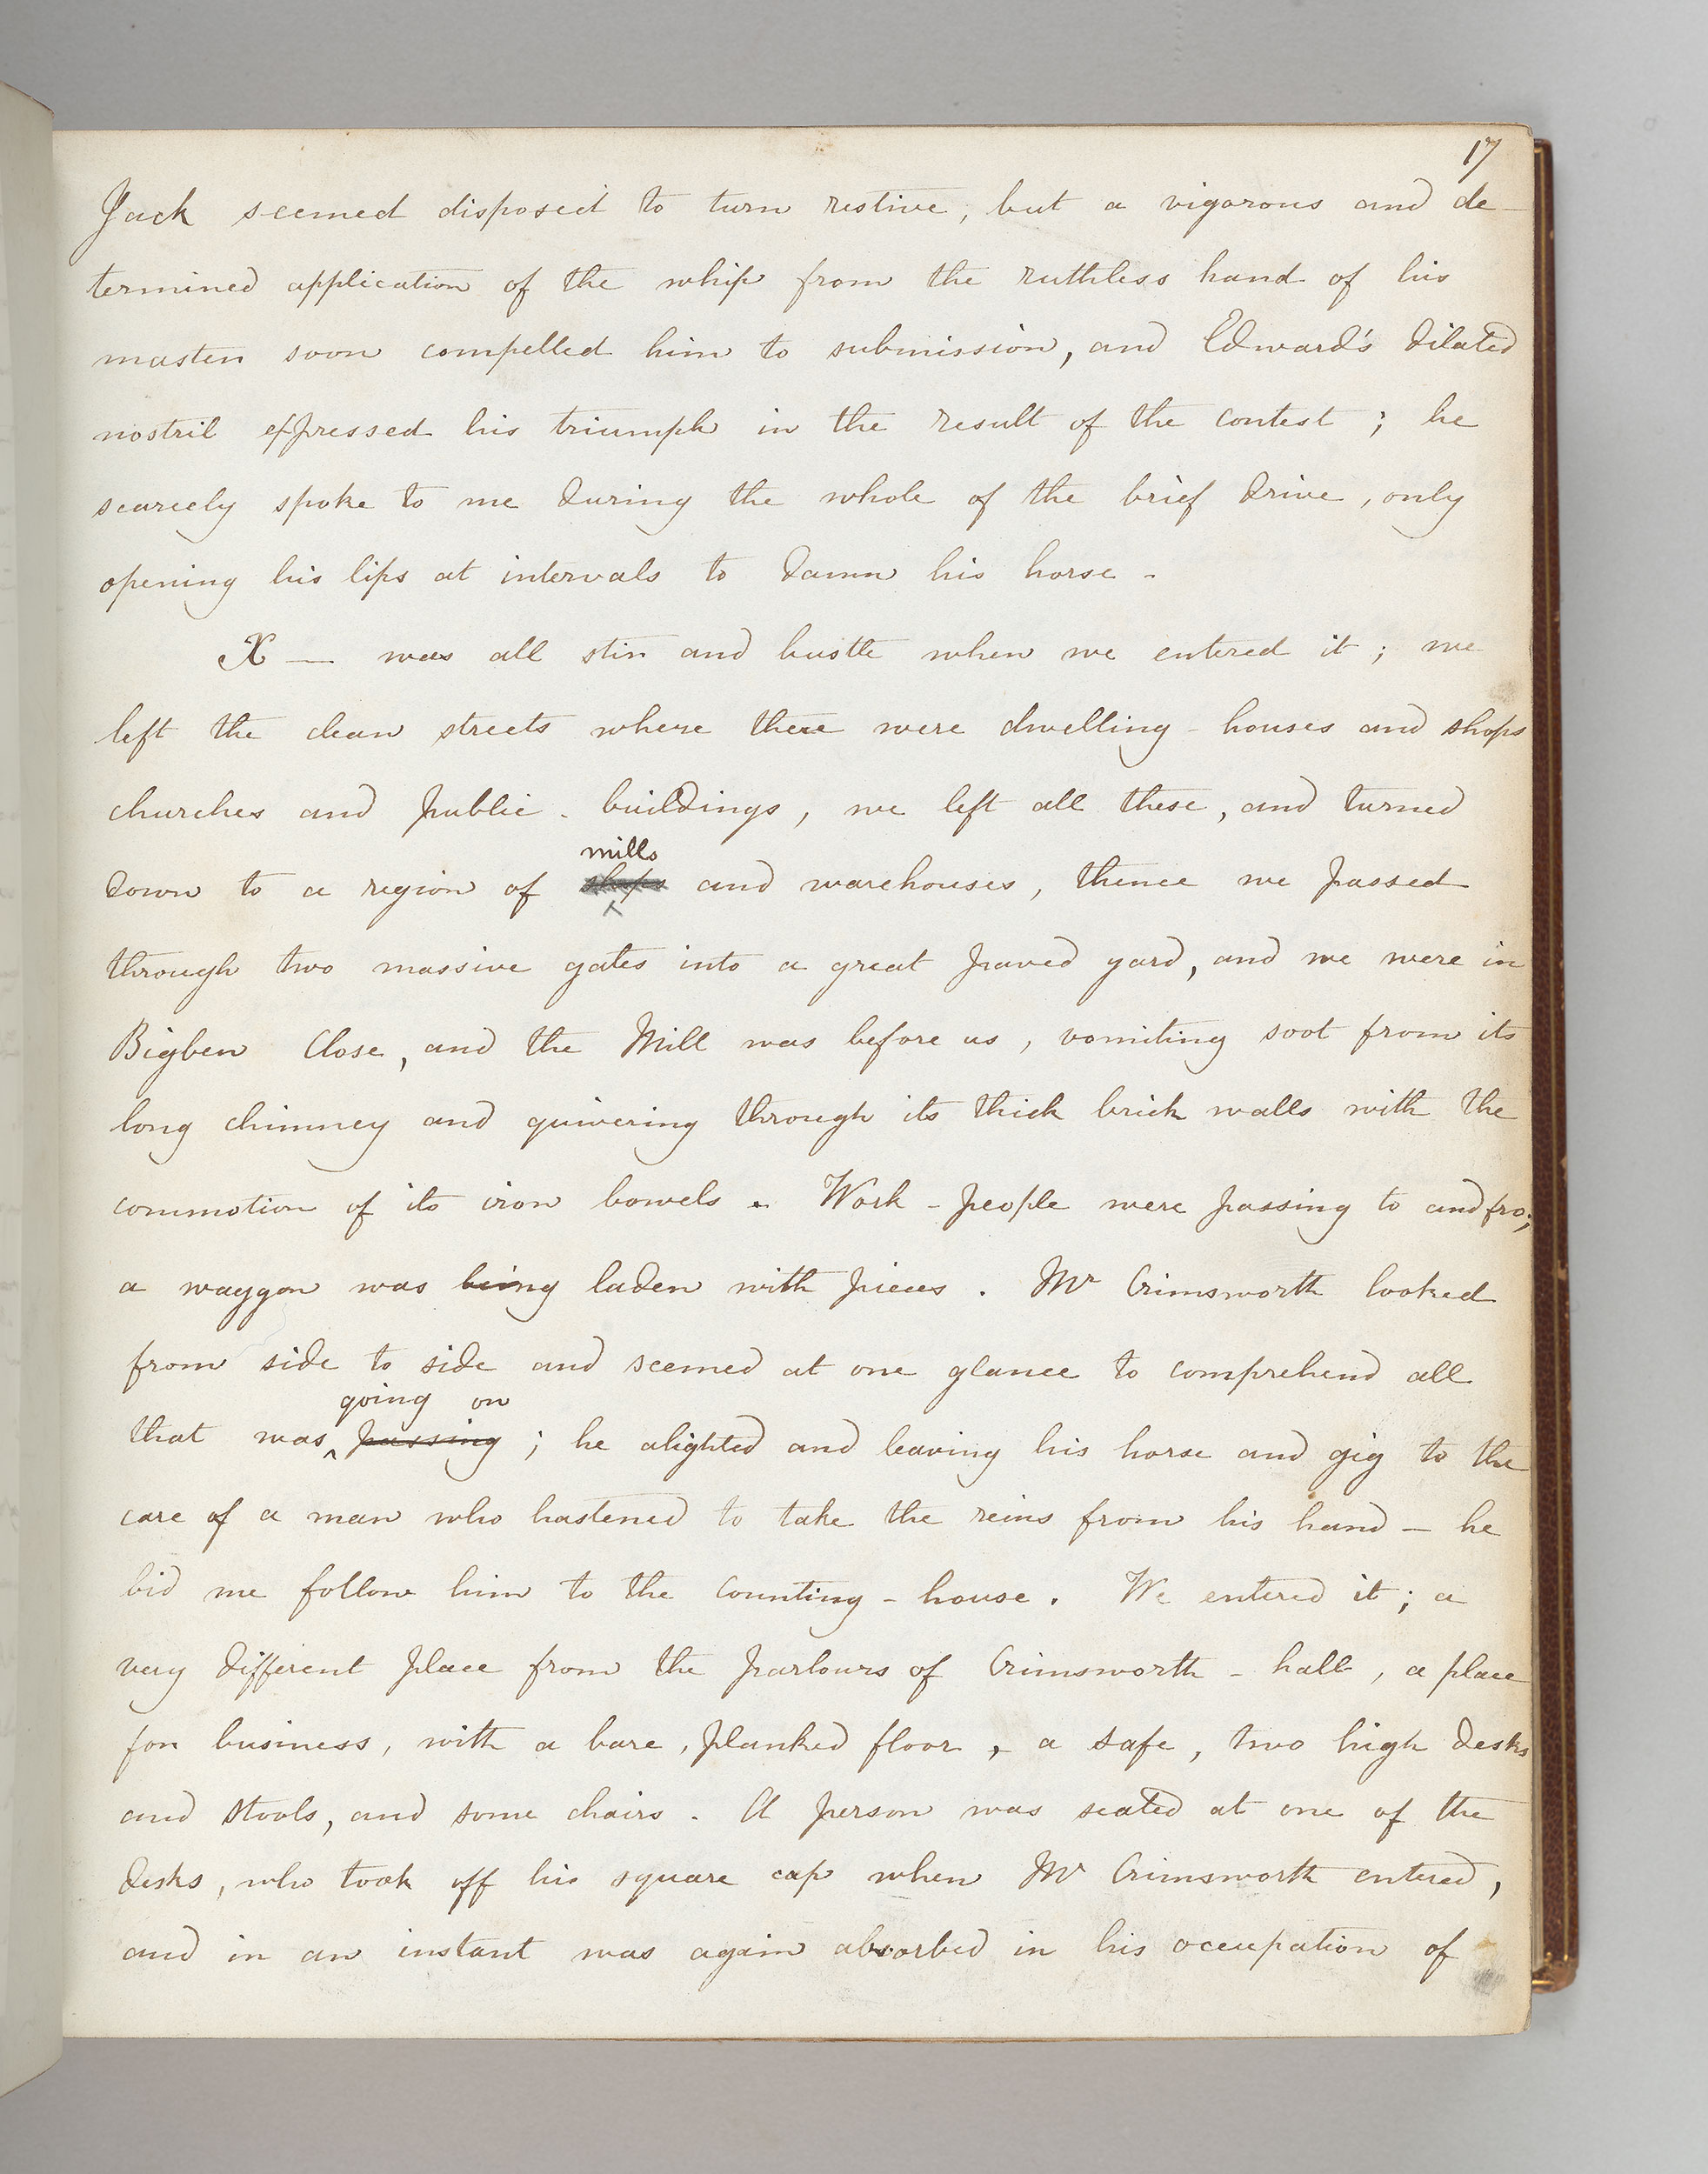 17
Jack seemed disposed to turn restive, but a vigorous and de-
termined application of the whip from the ruthless hand of his
master soon compelled him to submission, and Edward's dilated
nostril expressed his triumph in the result of the contest ; he
scarcely spoke to me during the whole of the brief drive, only
opening his lips at intervals to damn his horse.
X — was all stir and bustle when we entered it ; we
left the clean streets where there were dwelling-houses and shops
churches and public-buildings, we left all these, and turned
mills
down to a region of shops and warehouses, thence we passed
through two massive gates into a great paved yard, and we were in
Bigben Close, and the Mill was before us, vomiting soot from its
long chimney and quivering through its thick brick walls with the
commotion of its iron bowels. Work-people were passing to and fro;
a waggon was being laden with pieces. Mr Crimsworth looked
from side to side and seemed at one glance to comprehend all
going on
that was passing ; he alighted and leaving his horse and gig to the
care of a man who hastened to take the reins from his hand — he
bid me follow him to the counting-house. We entered it ; a
very different place from the parlours of Crimsworth-hall, a place
for business, with a bare, planked floor, a safe, two high desks
and stools, and some chairs. A person was seated at one of the
desks, who took off his square cap when Mr Crimsworth entered,
and in an instant was again absorbed in his occupation of